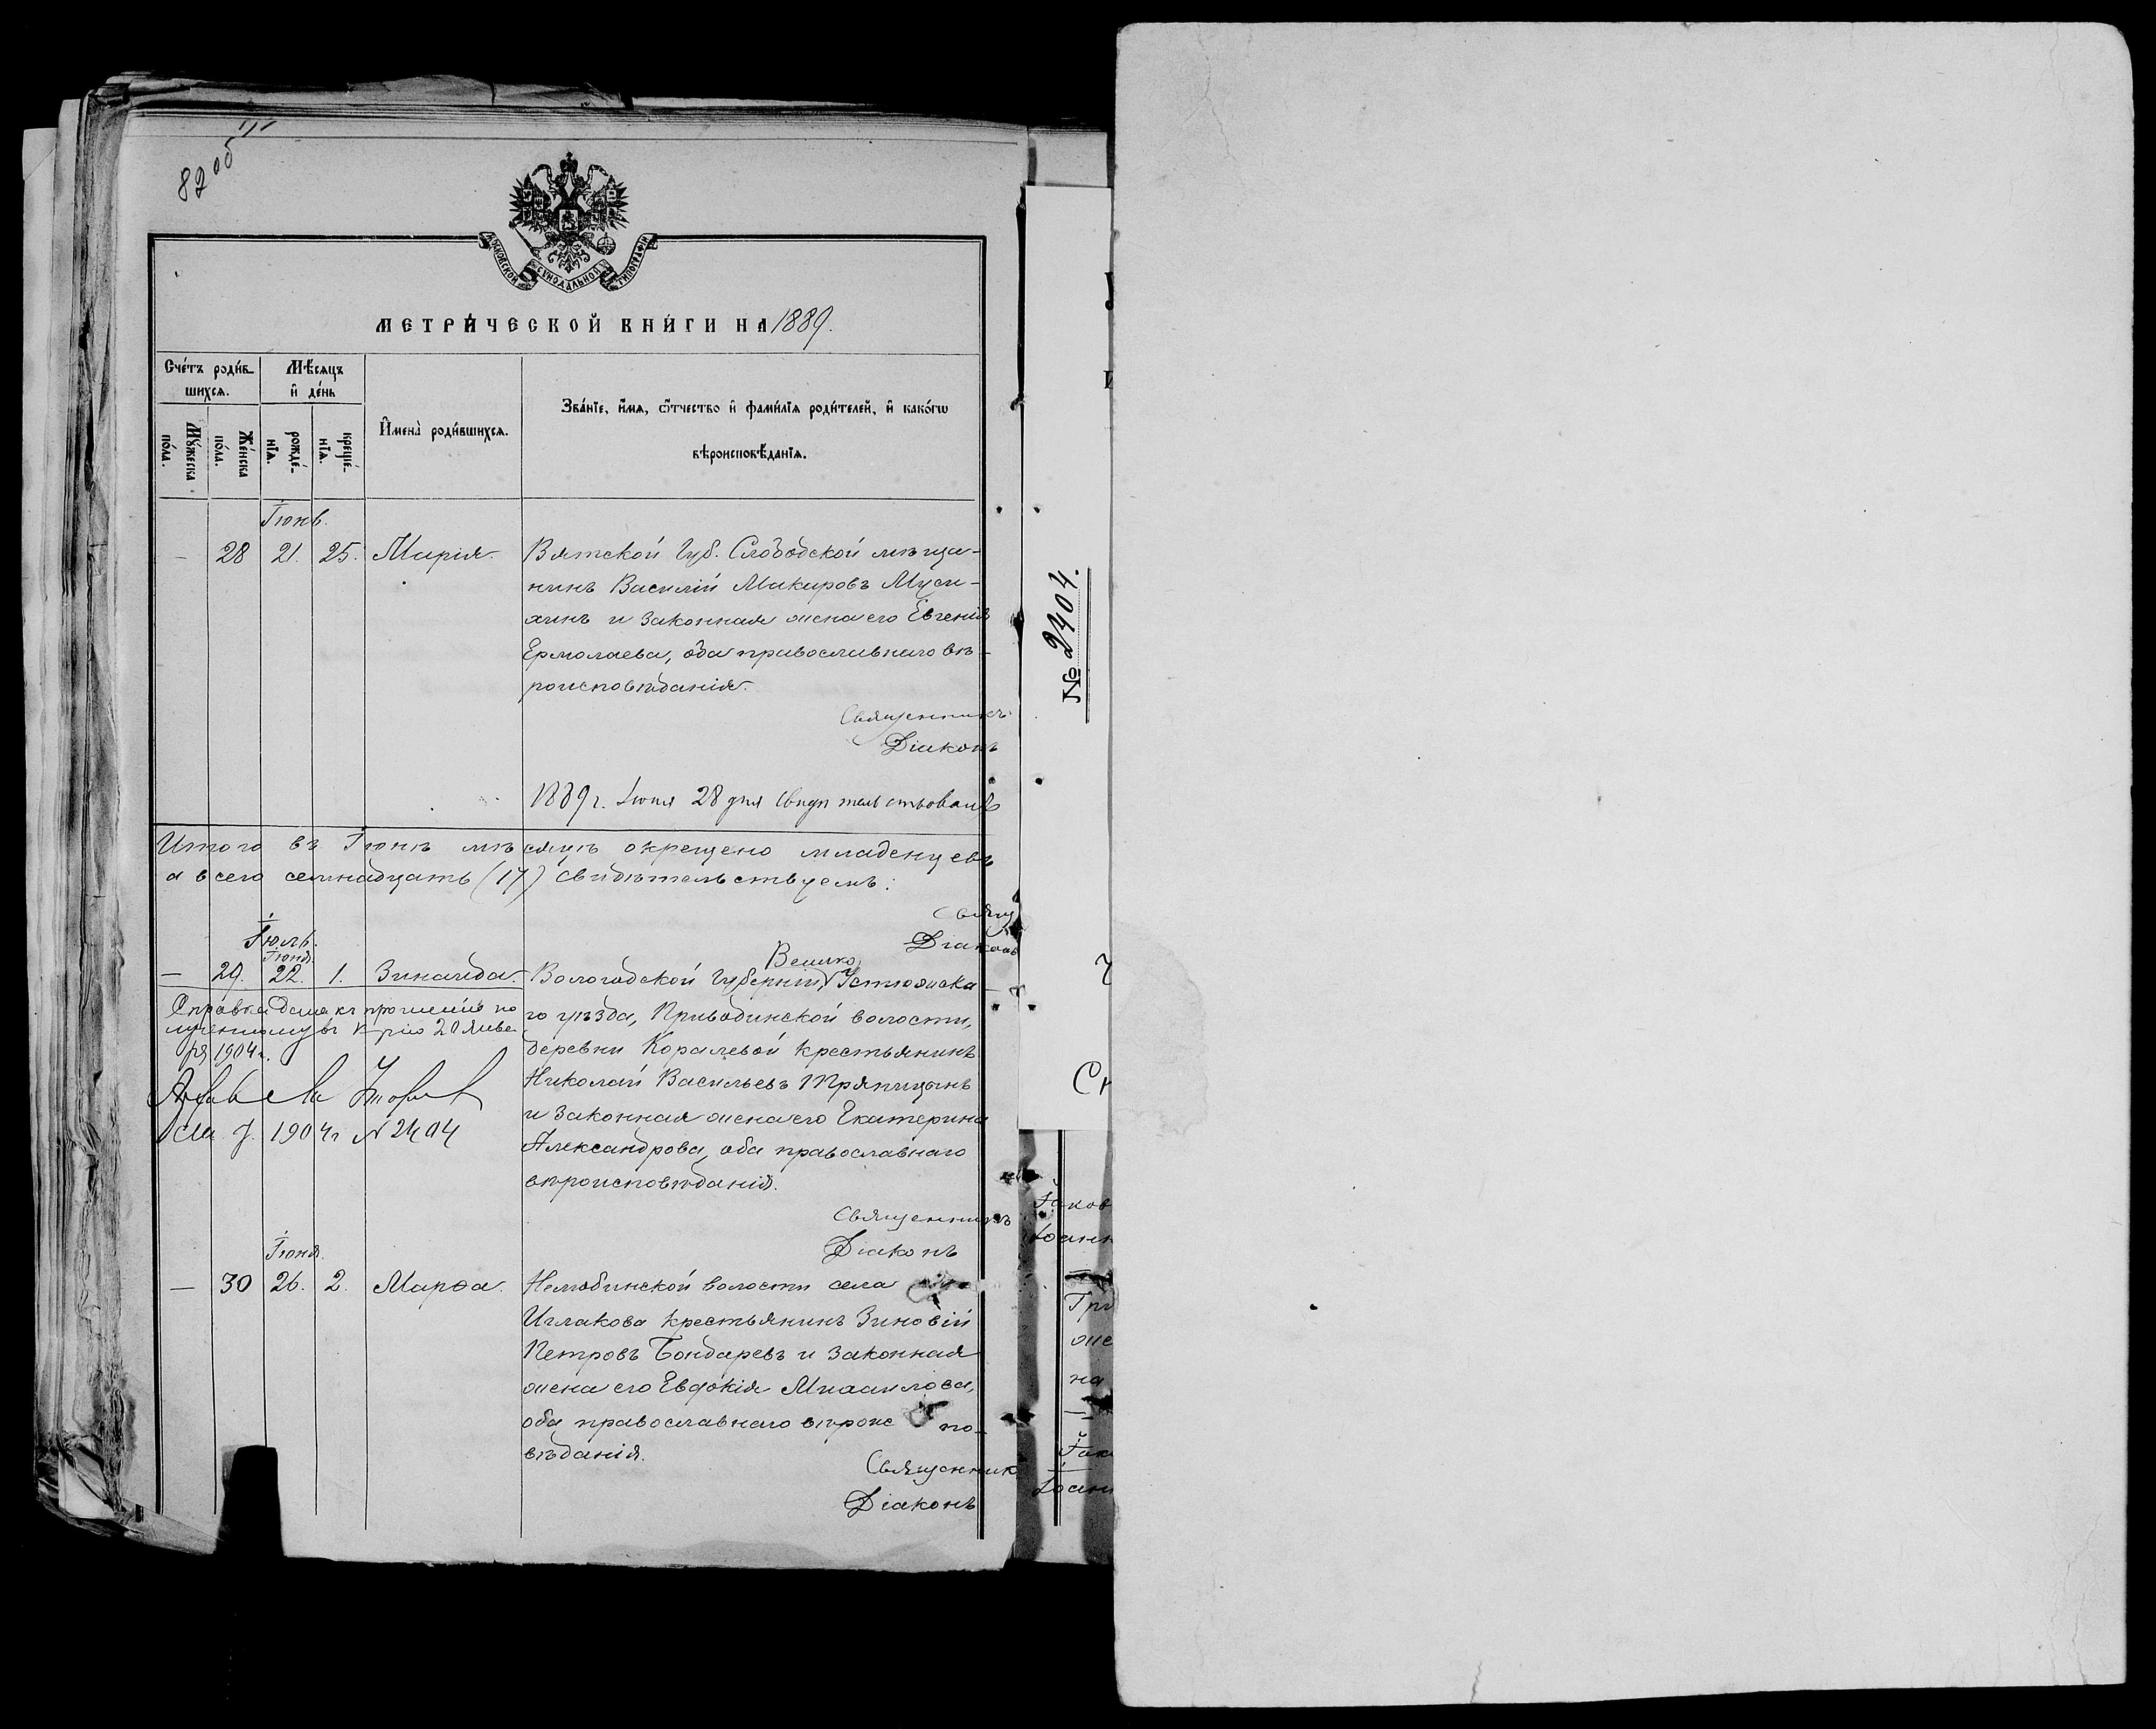 82 об
МОСКОВСКОЙ СѴНОДАЛЬНОЙ ТИПОГРАФІИ
МЕТРИ́ЧЕСКОЙ КНИ́ГИ НА 1889.
Сче́тъ роди́в-
шихсѧ.
Мѣ́сѧцъ
и҆ де́нь
Мꙋ́жеска
по́ла.
Же́нска
по́ла.
рожде́-
нїѧ.
креще́-
нїѧ.
И҆мена̀ роди́вшихсѧ.
Зва́нїе, и҆́мѧ, ѻ҆́тчество и҆ фами́лїѧ роди́телей, и҆ како́гѡ
вѣроисповѣ́данїѧ.
Іюнь.
— 28 21. 25. Марія. Вятской Губ. Слободской мѣща-
нинъ Василій Макаровъ Муси-
хинъ и законная жена его Евгенія
Ермолаева, оба православнаго вѣ-
роисповѣданія.
Священникъ
Діаконъ
1889 г. Іюня 28 дня свидѣтельствовалъ
Итого въ Іюнѣ мѣсяцѣ окрещено младенцевъ
а всего семнадцать (17) свидѣтельствуемъ:
Свящ
Діаконъ
Іюль.
Іюня
Велико
— 29. 22. 1. Зинаида. Вологодской Губерніи, Устюжска-
го уѣзда, Приводинской волости,
деревни Королевой крестьянинъ
Николай Васильевъ Тряпицынъ
и законная жена его Екатерина
Александрова, оба православнаго
вѣроисповѣданія.
Справка дана къ прошенію по
лученному въ К-рію 20 Янва
ря 1904 г.
1904 г № 2404
Священникъ
Діаконъ
Іюня.
— 30 26. 2. Марѳа. Нелюбинской волости села
Иглакова крестьянинъ Зиновій
Петровъ Бондаревъ и законная
жена его Евдокія Михаилова,
оба православнаго вѣроис по-
вѣданія.
Священник
Діаконъ
№ 2404.
Яков
Іоанн
Гри
же
на
Іоанн